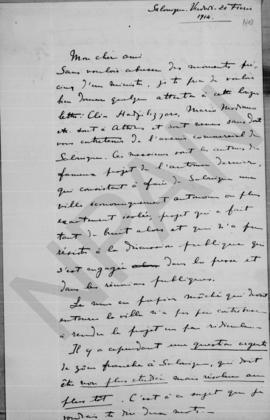 Salonique, Vendredi 20 Févr.
1914.
Mon cher ami
Sans vouloir abuser des moments pré-
cieux d'un ministre, je te prie de vouloir
bien donner quelque attention à cette longue
lettre. Elia Hadji Lazzaro, Mario Modiano
etc. sont à Athènes et sont venus sans doute
vous entretenir de l'avenir commercial de
Salonique. Ces messieurs sont les auteurs du
fameux projet de l'automne dernier,
qui consistait à faire de Salonique une
ville économiquement autonome ou plus
exactement isolée, projet qui a fait
tant de bruit alors et qui n'a pu
résister à la discussion publique qui
s'est engagée dans la presse et
dans les réunions publiques.
Le mur en papier mâché qui devait
entourer la ville n'a pas peu contribué
à rendre le projet un peu ridicule.
Il y a cependant une question urgente
de zône franche à Salonique, qui doit
être non plus étudiée mais résolue au
plus tôt. C'est à ce sujet que je
voudrais te dire deux mots.